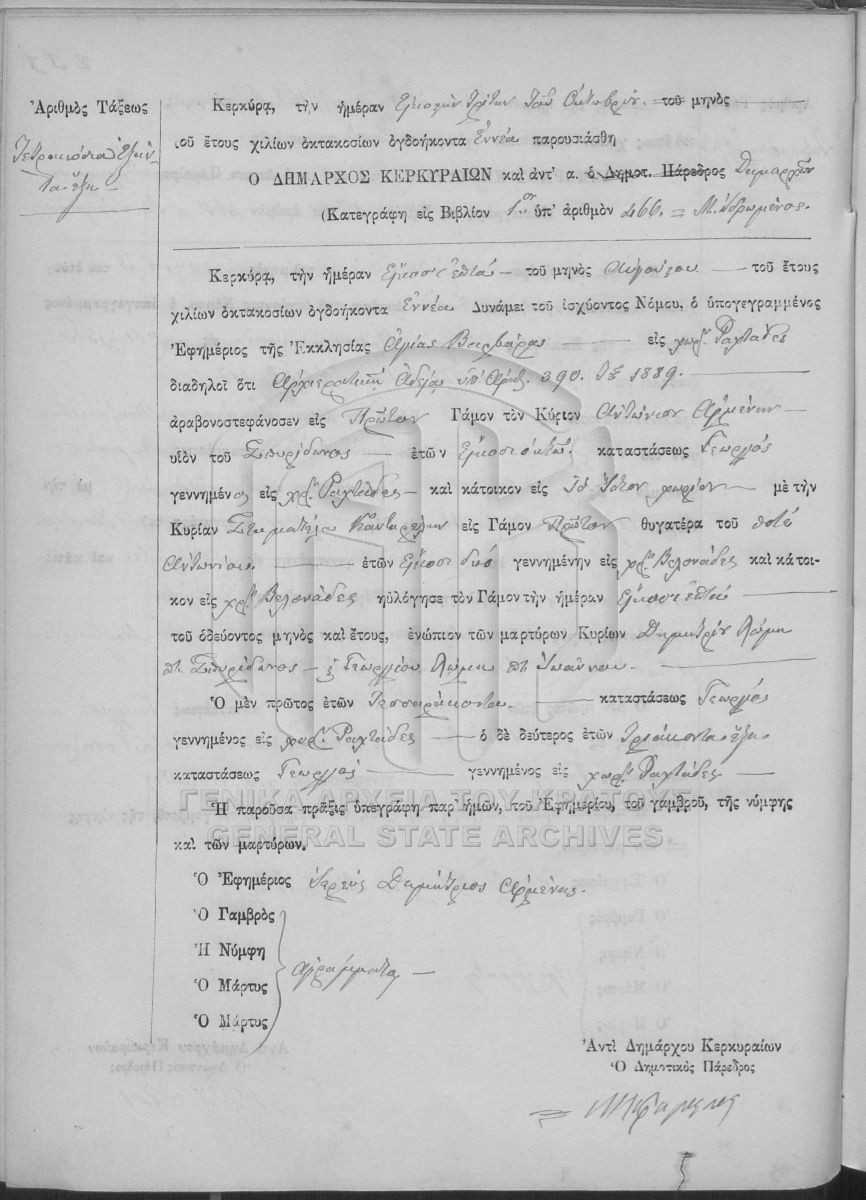 Ἀριθμὸς Τάξεως
Τετρακόσια ἑξήκ-
τα ἕξη
Κερκύρᾳ, τὴν ἡμέραν Εἰκοστὴν Τρίτην Τοῦ Ὀκτωβρίου τοῦ μηνὸς
τοῦ ἔτους χιλίων ὀκτακοσίων ὀγδοήκοντα Ἐννέα παρουσιάσθη
Ὁ ΔΗΜΑΡΧΟΣ ΚΕΡΚΥΡΑΙΩΝ καὶ ἀντ' α. ὁ Δημοτ. Πάρεδρος Δημαρχῶν
(Κατεγράφη εἰς Βιβλίον 1ον ὑπ' ἀριθμὸν 466. =
Κερκύρᾳ, τὴν ἡμέραν Εἴκοσι ἑπτά — τοῦ μηνὸς Αὐγούστου — τοῦ ἔτους
χιλίων ὀκτακοσίων ὀγδοήκοντα Ἐννέα Δυνάμει τοῦ ἰσχύοντος Νόμου, ὁ ὑπογεγραμμένος
Ἐφημέριος τῆς Ἐκκλησίας Ἁγίας Βαρβάρας — εἰς χωρ. Ραχτάδες
διαδηλοῖ ὅτι Ἀρχιερατικῇ Ἀδείᾳ ὑπ' Ἀριθ. 390. 1889. —
ἀραβονοστεφάνοσεν εἰς Πρῶτον Γάμον τὸν Κύριον Ἀντώνιον Ἀρμένην —
υἱὸν τοῦ Σπυρίδωνος — ἐτῶν Εἴκοσι ὀκτώ καταστάσεως Γεωργός
γεννημένος εἰς χρ. Ραχτάδες — καὶ κάτοικον εἰς Τὸ ἴδιον χωρίον — μὲ τὴν
Κυρίαν Σταματέλα Κανταρέλη εἰς Γάμον Πρῶτον θυγατέρα τοῦ ποτέ
Ἀντωνίου. — ἐτῶν Εἴκοσι δύο γεννημένην εἰς χρ. Βελονάδες καὶ κάτοι-
κον εἰς χρ. Βελονάδες ηὐλόγησε τὸν Γάμον τὴν ἡμέραν Εἴκοσι ἑπτά —
τοῦ ὁδεύοντος μηνὸς καὶ ἔτους, ἐνώπιον τῶν μαρτύρων Κυρίων Δημητρίου Λώμη
πτ. Σπυρίδωνος — Γεωργίου Λώμη πτ. Ἰωάννου. —
Ὁ μὲν πρῶτος ἐτῶν Τεσσαράκοντα. — καταστάσεως Γεωργός
γεννημένος εἰς χωρ. Ραχτάδες — ὁ δὲ δεύτερος ἐτῶν Τριάκοντα ἕξη.
καταστάσεως Γεωργός — γεννημένος εἰς χωρ. Ραχτάδες. —
ΓΕΝΙΚΑ ΑΡΧΕΙΑ ΤΟΥ ΚΡΑΤΟΥΣ
Ἡ παροῦσα πρᾶξις ὑπεγράφη παρ' ἡμῶν, τοῦ Ἐφημερίου, τοῦ γαμβροῦ, τῆς νύμφης
GENERAL STATE ARCHIVES
καὶ τῶν μαρτύρων.
Ὁ Ἐφημέριος Ἱερεύς Δημήτριος Ἀρμένης.
Ὁ Γαμβρὸς
Ἡ Νύμφη
Ἀγράμματοι —
Ὁ Μάρτυς
Ὁ Μάρτυς
Ἀντὶ Δημάρχου Κερκυραίων
Ὁ Δημοτικὸς Πάρεδρος